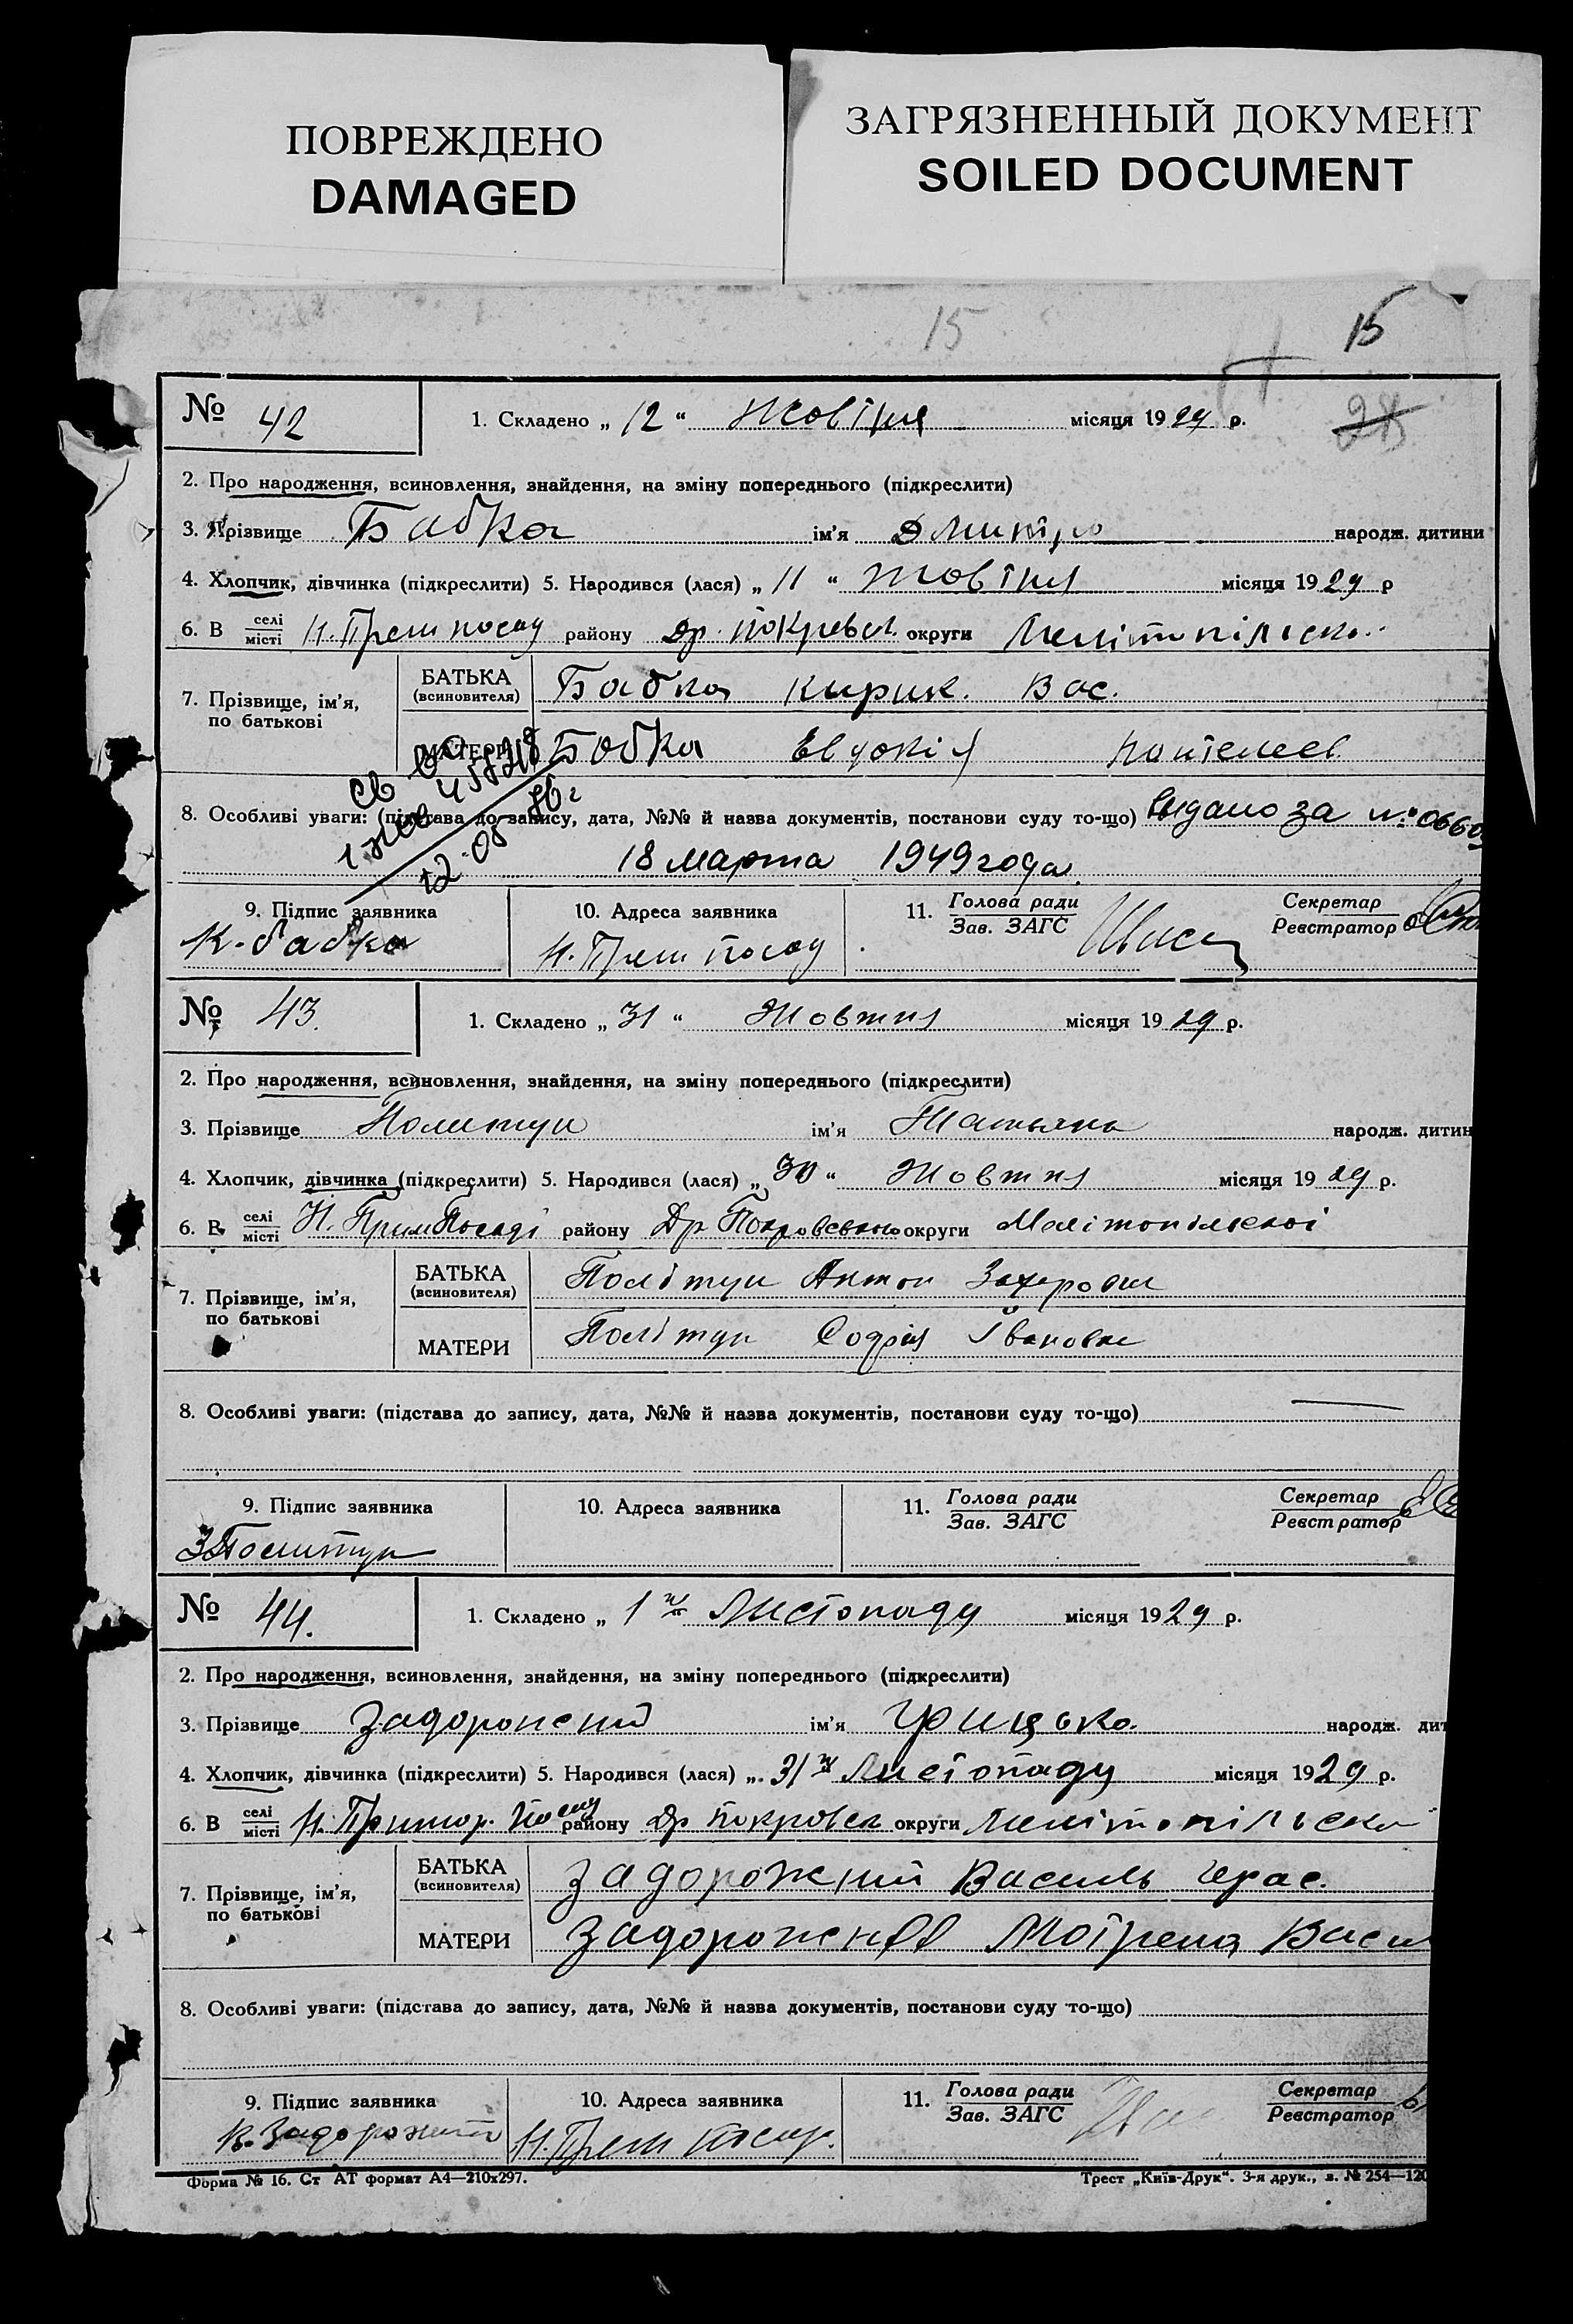 ПОВРЕЖДЕНО
DAMAGED
ЗАГРЯЗНЕННЫЙ ДОКУМЕНТ
SOILED DOCUMENT
15
15
28
№ 42
1. Складено „ 12 “ Жовтня місяця 1929 р.
2. Про народження, всиновлення, знайдення, на зміну попереднього (підкреслити)
3. Прізвище Бабка ім'я Дмитро народж. дитини
4. Хлопчик, дівчинка (підкреслити) 5. Народився (лася) „ 11 “ Жовтня місяця 1929 р
6. В селі місті Н. Прем посад району Др. Покровск. округи Мелітопільско.
7. Прізвище, ім'я, по батькові
БАТЬКА (всиновителя) Бабка Кирик. Вас.
МАТЕРИ Бабка Евдокія Пантелеев
8. Особливі уваги: (підстава до запису, дата, №№ й назва документів, постанови суду то-що) Выдано за №
18 марта 1949 года.
9. Підпис заявника К. Бабка
10. Адреса заявника Н. Прем посад
11. Голова ради Зав. ЗАГС
Секретар Реєстратор
№ 43.
1. Складено „ 31 “ Жовтня місяця 1929 р.
2. Про народження, всиновлення, знайдення, на зміну попереднього (підкреслити)
3. Прізвище Полетун ім'я Татьяна народж. дитин
4. Хлопчик, дівчинка (підкреслити) 5. Народився (лася) „ 30 “ Жовтня місяця 1929 р.
6. В селі місті Н. Прим Посаді району Др Покровського округи Мелітопільскоі
7. Прізвище, ім'я, по батькові
БАТЬКА (всиновителя) Політун Антон Захарович
МАТЕРИ Політун Софія Івановна
8. Особливі уваги: (підстава до запису, дата, №№ й назва документів, постанови суду то-що)
9. Підпис заявника
10. Адреса заявника
11. Голова ради Зав. ЗАГС
Секретар Реєстратор
№ 44.
1. Складено „ 1 “ Листопаду місяця 1929 р.
2. Про народження, всиновлення, знайдення, на зміну попереднього (підкреслити)
3. Прізвище Задорожний ім'я Грицько. народж. дит
4. Хлопчик, дівчинка (підкреслити) 5. Народився (лася) „ 31 “ Листопаду місяця 1929 р.
6. В селі місті Н. Примор. Посад району Др Покровск округи Мелітопільско
7. Прізвище, ім'я, по батькові
БАТЬКА (всиновителя) Задорожний Василь Герас.
МАТЕРИ Задорожня Мотрена Васи
8. Особливі уваги: (підстава до запису, дата, №№ й назва документів, постанови суду то-що)
9. Підпис заявника В. Задорожний
10. Адреса заявника Н. Прем посад.
11. Голова ради Зав. ЗАГС
Секретар Реєстратор
Форма № 16. Ст АТ формат А4—210х297.
Трест „Київ-Друк“. 3-я друк., з. № 254—120